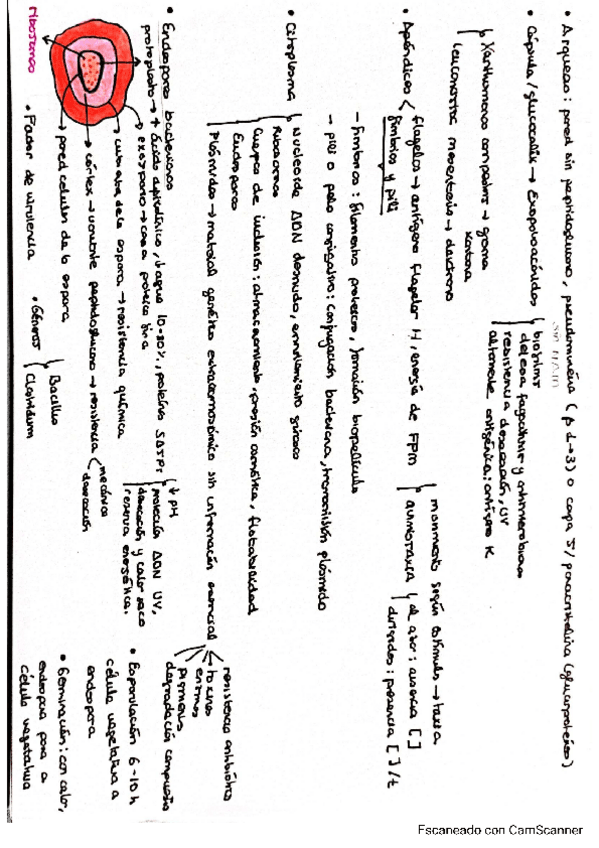 • Arqueas: pared sin peptidoglucano, pseudomureína (β 1→3) o capa S / paracristalina (glucoproteínas)
SIN NAM
• Cápsula / glucocalix → Exopolisacáridos
biofilms
defensa fagocitosis y antimicrobianos
resistencia desecación, UV
altamente antigénica: antígeno K
Xanthomonas campestris → goma xantana
Leuconostoc mesenteroides → dextrano
• Apéndices
flagelos → antígeno flagelar H, energía de FPM
fimbrias y pili
movimiento según estímulo → taxia
quimiotaxia
al azar: ausencia [ ]
dirigidos: presencia [ ]/t
- fimbrias: filamentos proteicos, formación biopelícula
- pili o pelos conjugativos: conjugación bacteriana, transmisión plásmido
• Citoplasma
Nucleoide ADN desnudo, enrollamiento girasa
Ribosomas
Cuerpos de inclusión: almacenamiento, presión osmótica, flotabilidad
Endosporas
Plásmidos → material genético extracromosómico sin información esencial
resistencia antibiótica
toxinas
enzimas
pigmentos
degradación compuestos
• Endospora bacteriana
protoplasto → + ácido dipicolínico, ↓ agua 10-30%, proteína SASPs
↓ pH
protección ADN UV,
desecación y calor seco
reserva energética.
exosporio → capa proteica fina
cubierta de la espora → resistencia química
córtex → variante peptidoglucano → resistencia
mecánica
desecación
pared celular de la espora
ribosomas
• Factor de virulencia
• Géneros
Bacillus
Clostridium
• Esporulación 6-10 h
célula vegetativa a
endospora
• Germinación: con calor,
endospora pasa a
célula vegetativa
Escaneado con CamScanner